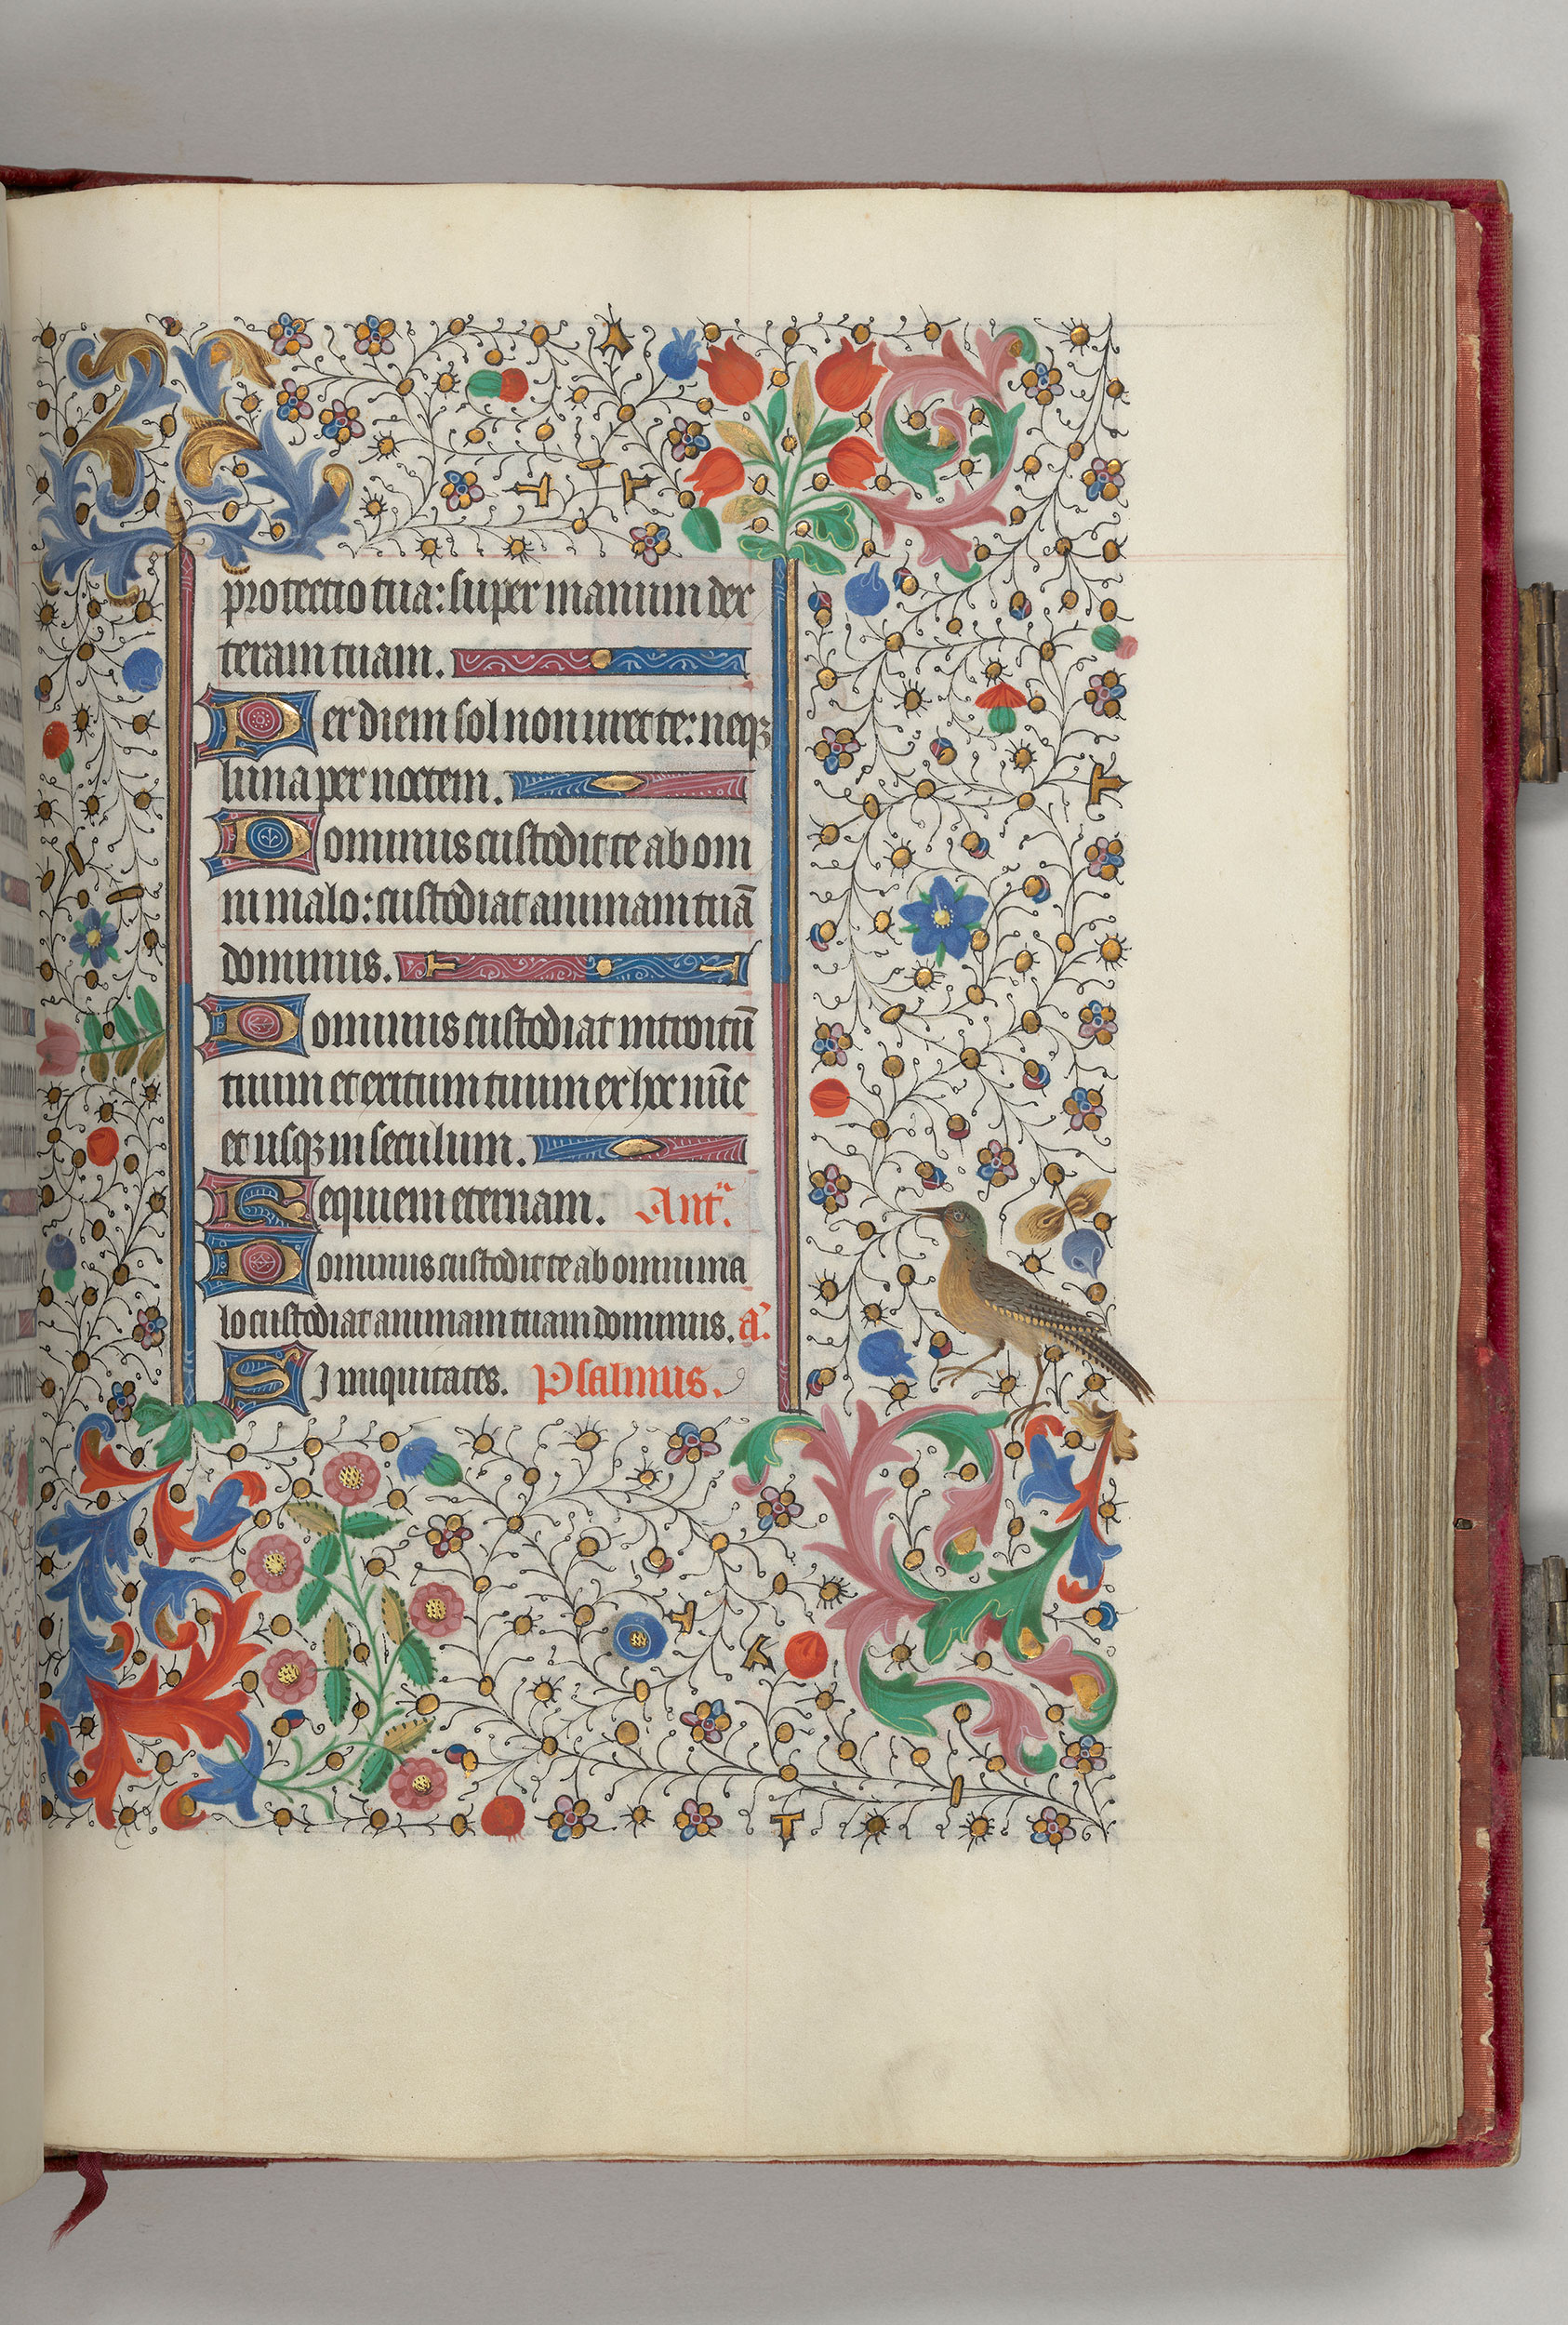 protectio tua: super manum dex
teram tuam.
Per diem sol non uret te: neqꝫ
luna per noctem.
Dominus custodit te ab om
ni malo: custodiat animam tuā
dominus.
Dominus custodiat introitū
tuum et exitum tuum ex hoc nūc
et usqꝫ in seculum.
Requiem eternam. Ant.
Dominus custodit te ab omni ma
lo custodiat animam tuam dominus. a.
Si iniquitates. Psalmus.